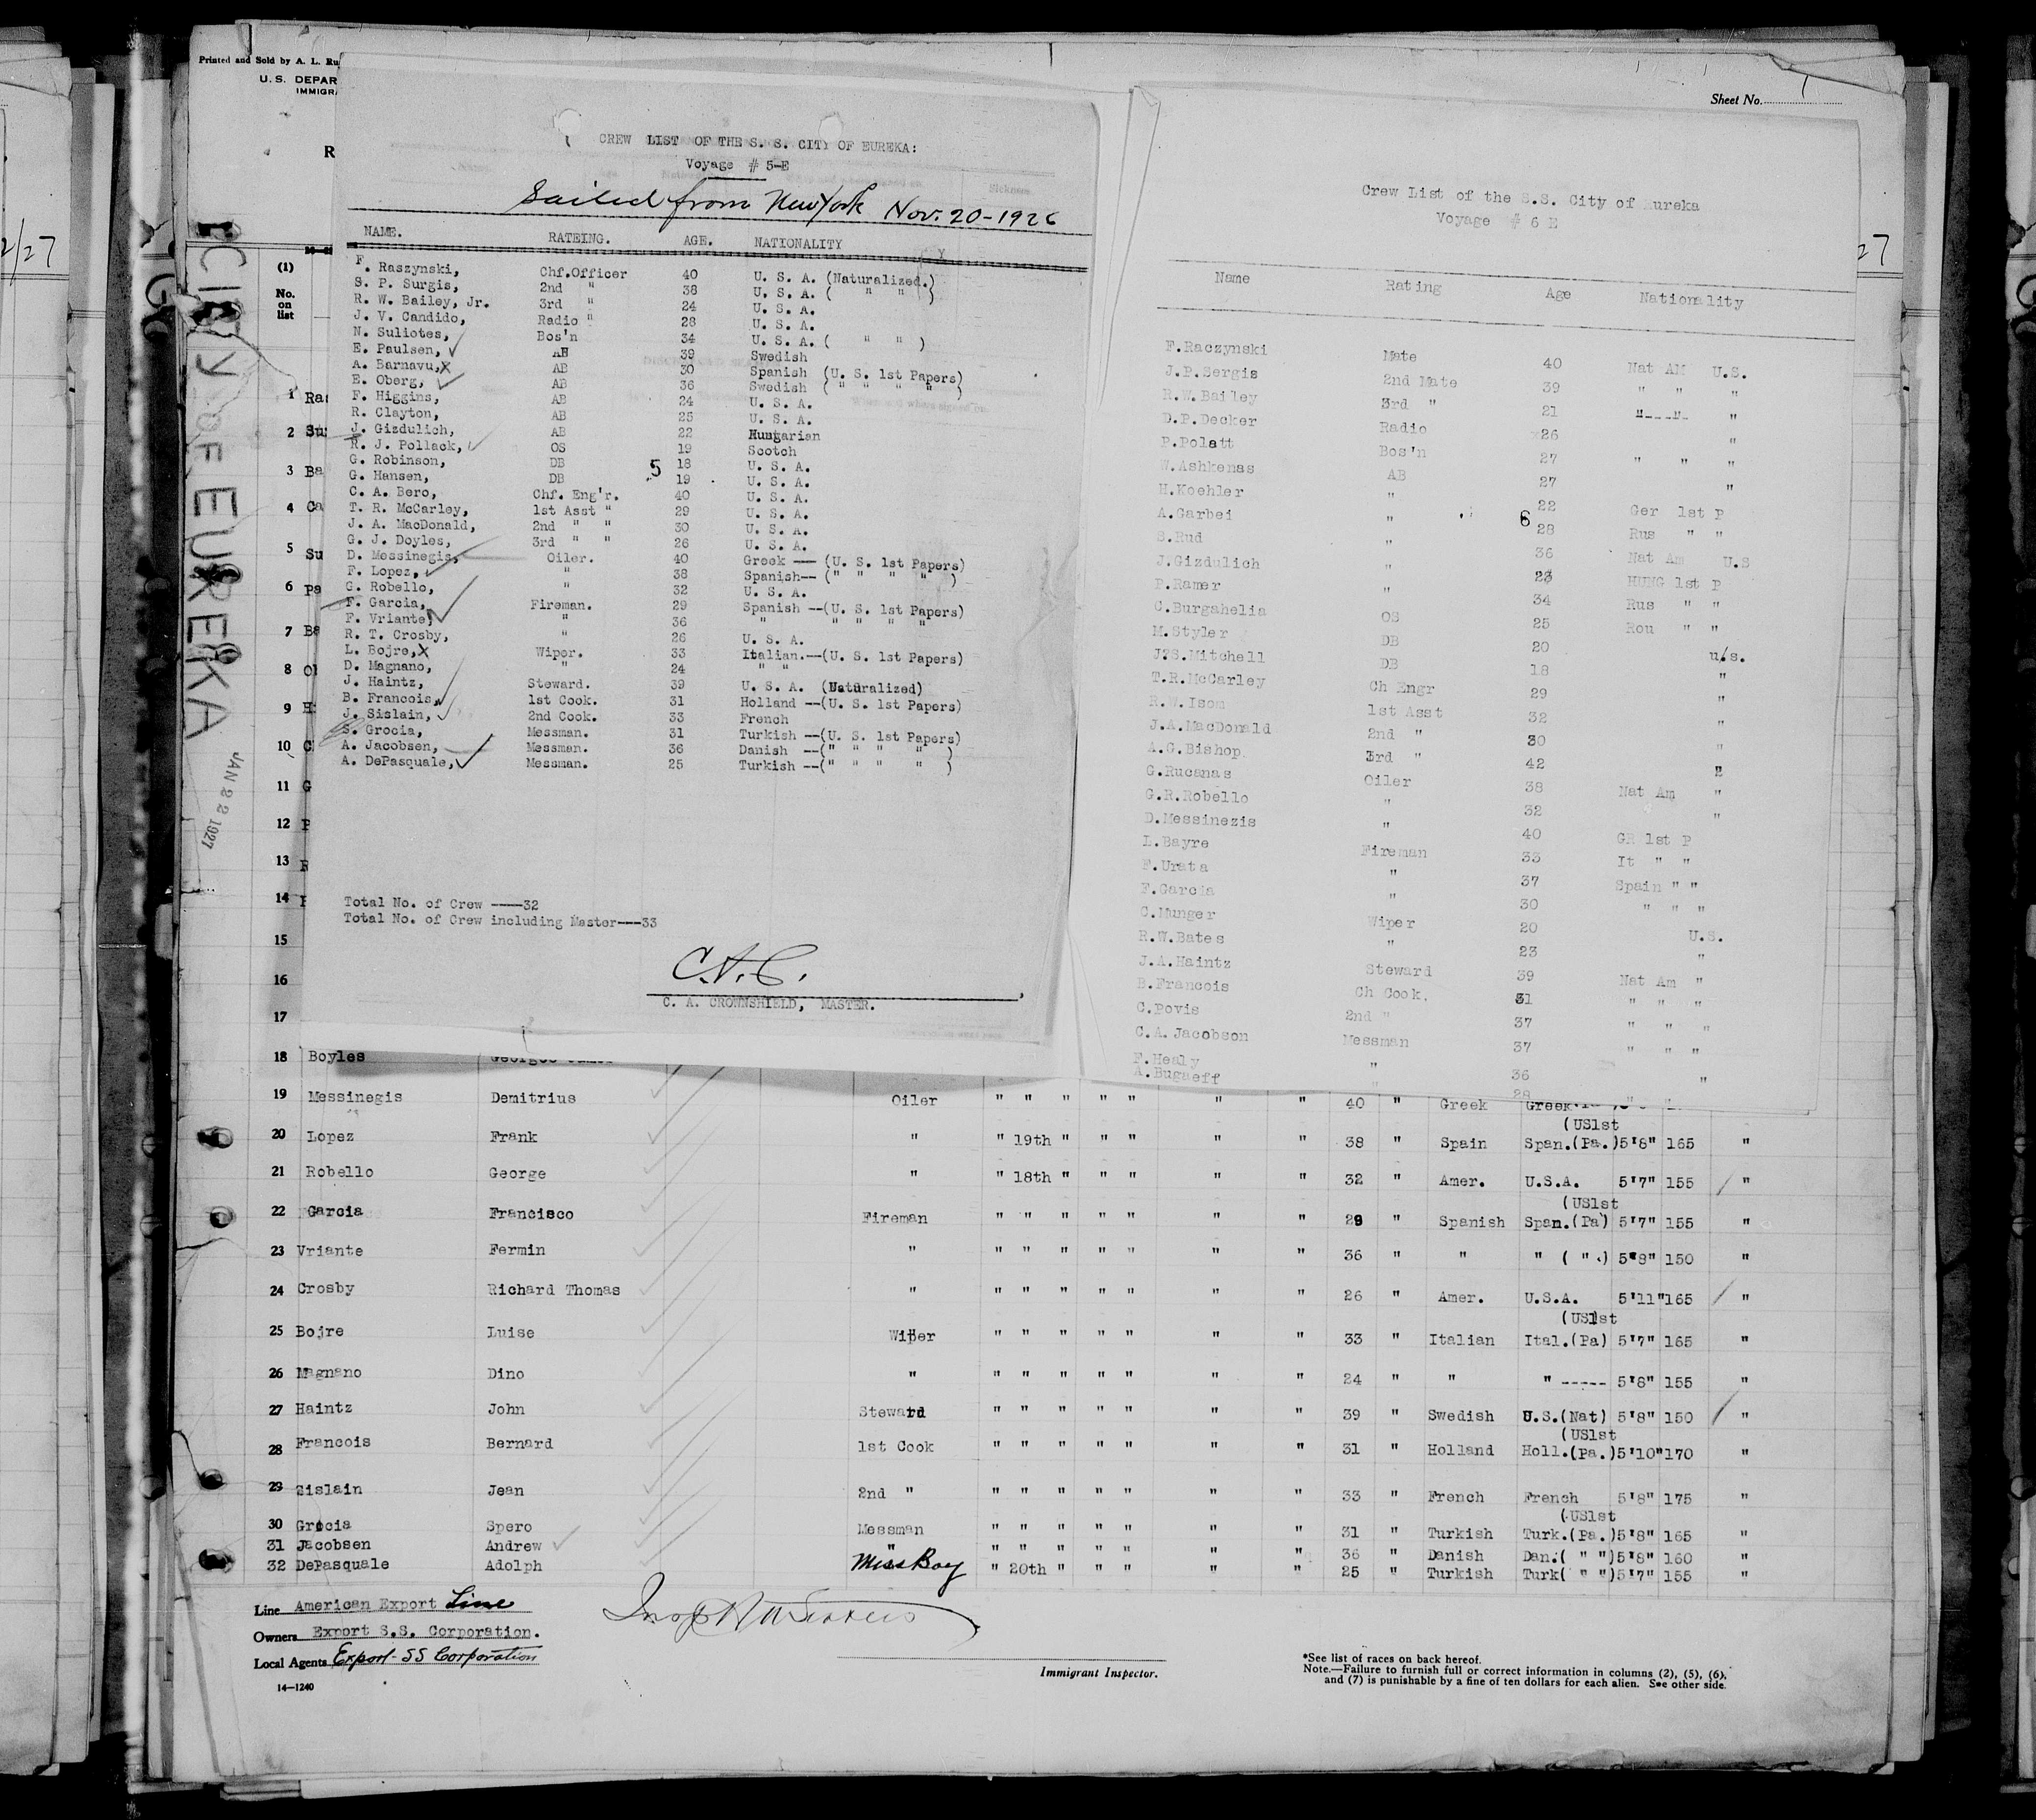 Printed and Sold by A. L. Ru
U. S. DEPAR
IMMIGRA
R
Sheet No.
2/27
27
CITY OF EUREKA
JAN 22 1927
CREW LIST OF THE S. S. CITY OF EUREKA:
Voyage # 5-E
Sailed from New York Nov. 20-1926
NAME. RATEING. AGE. NATIONALITY
F. Raszynski, Chf.Officer 40 U. S. A. (Naturalized.)
S. P. Surgis, 2nd " 38 U. S. A. ( " " )
R. W. Bailey, Jr. 3rd " 24 U. S. A.
J. V. Candido, Radio " 28 U. S. A.
N. Suliotes, Bos'n 34 U. S. A. ( " " )
E. Paulsen, AB 39 Swedish
A. Barnavu, AB 30 Spanish (U. S. 1st Papers)
E. Oberg, AB 36 Swedish ( " " " " )
F. Higgins, AB 24 U. S. A.
R. Clayton, AB 25 U. S. A.
J. Gizdulich, AB 22 Hungarian
R. J. Pollack, OS 19 Scotch
G. Robinson, DB 5 18 U. S. A.
G. Hansen, DB 19 U. S. A.
C. A. Bero, Chf. Eng'r. 40 U. S. A.
T. R. McCarley, 1st Asst " 29 U. S. A.
J. A. MacDonald, 2nd " " 30 U. S. A.
G. J. Doyles, 3rd " " 26 U. S. A.
D. Messinegis, Oiler. 40 Greek -- (U. S. 1st Papers)
F. Lopez, " 38 Spanish-- (" " " " )
G. Robello, " 32 U. S. A.
F. Garcia, Fireman. 29 Spanish --(U. S. 1st Papers)
F. Vriante, " 36 " " " " "
R. T. Crosby, " 26 U. S. A.
L. Bojre, Wiper. 33 Italian.--(U. S. 1st Papers)
D. Magnano, " 24 " "
J. Haintz, Steward. 39 U. S. A. (Naturalized)
B. Francois, 1st Cook. 31 Holland --(U. S. 1st Papers)
J. Sislain, 2nd Cook. 33 French
S. Grocia, Messman. 31 Turkish --(U. S. 1st Papers)
A. Jacobsen, Messman. 36 Danish --(" " " " )
A. DePasquale, Messman. 25 Turkish --(" " " " )
Total No. of Crew ----32
Total No. of Crew including Master---33
C.A.C.
C. A. CROWNSHIELD, MASTER.
Crew List of the S.S. City of Eureka
Voyage # 6 E
Name Rating Age Nationality
F.Raczynski Mate 40 Nat AM U.S.
J.P.Sergis 2nd Mate 39 " " "
R.W.Bailey 3rd " 21 "----"- "
D.P.Decker Radio 26 "
P.Polatt Bos'n 27 " " "
W.Ashkenas AB 27 "
H.Koehler " 22 Ger 1st P
A.Garbei " 6 28 Rus " "
S.Rud " 36 Nat Am U.S
J.Gizdulich " 23 HUNG 1st P
P.Ramer " 34 Rus " "
C.Burgahelia OS 25 Rou " "
M.Styler DB 20 u.s.
J.S.Mitchell DB 18 "
T.R.McCarley Ch Engr 29 "
R.W.Isom 1st Asst 32 "
J.A.MacDonald 2nd " 30 "
A.G.Bishop 3rd " 42 "
G.Rucanas Oiler 38 Nat Am "
G.R.Robello " 32 "
D.Messinezis " 40 GR 1st P
L.Bayre Fireman 33 It " "
F.Urata " 37 Spain " "
F.Garcia " 30 " " "
C.Munger Wiper 20 U.S.
R.W.Bates " 23 "
J.A.Haintz Steward 39 Nat Am "
B.Francois Ch Cook. 31 " " "
C.Povis 2nd " 37 " " "
C.A.Jacobson Messman 37 " " "
F.Healy " 36 "
A.Bugaeff " 28
(1)
No.
on
list
1 Ras
2 Su
3 Ba
4 Ca
5 Su
6 Pa
7 Ba
8 Ol
9 H
10 C
11 G
12 P
13 R
14
15
16
17
18 Boyles
19 Messinegis Demitrius Oiler " " " " " " " 40 " Greek Greek
20 Lopez Frank " " 19th " " " " " 38 " Spain Span.(US1st Pa.) 5'8" 165 "
21 Robello George " " 18th " " " " " 32 " Amer. U.S.A. 5'7" 155 "
22 Garcia Francisco Fireman " " " " " " " 29 " Spanish Span.(US1st Pa) 5'7" 155 "
23 Vriante Fermin " " " " " " " " 36 " " " ( " ) 5'8" 150 "
24 Crosby Richard Thomas " " " " " " " " 26 " Amer. U.S.A. 5'11" 165 "
25 Bojre Luise Wiper " " " " " " " 33 " Italian Ital.(US1st Pa) 5'7" 165 "
26 Magnano Dino " " " " " " " " 24 " " " ----- 5'8" 155 "
27 Haintz John Steward " " " " " " " 39 " Swedish U.S.(Nat) 5'8" 150 "
28 Francois Bernard 1st Cook " " " " " " " 31 " Holland Holl.(US1st Pa.) 5'10" 170 "
29 Sislain Jean 2nd " " " " " " " " 33 " French French 5'8" 175 "
30 Grocia Spero Messman " " " " " " " 31 " Turkish Turk.(US1st Pa.) 5'8" 165 "
31 Jacobsen Andrew " " " " " " " " 36 " Danish Dan.( " ") 5'8" 160 "
32 DePasquale Adolph Mess Boy " 20th " " " " " 25 " Turkish Turk( " ") 5'7" 155 "
Line American Export Line
Owners Export S.S. Corporation.
Local Agents Export-SS Corporation
14-1240
Immigrant Inspector.
*See list of races on back hereof.
Note.—Failure to furnish full or correct information in columns (2), (5), (6),
and (7) is punishable by a fine of ten dollars for each alien. See other side.